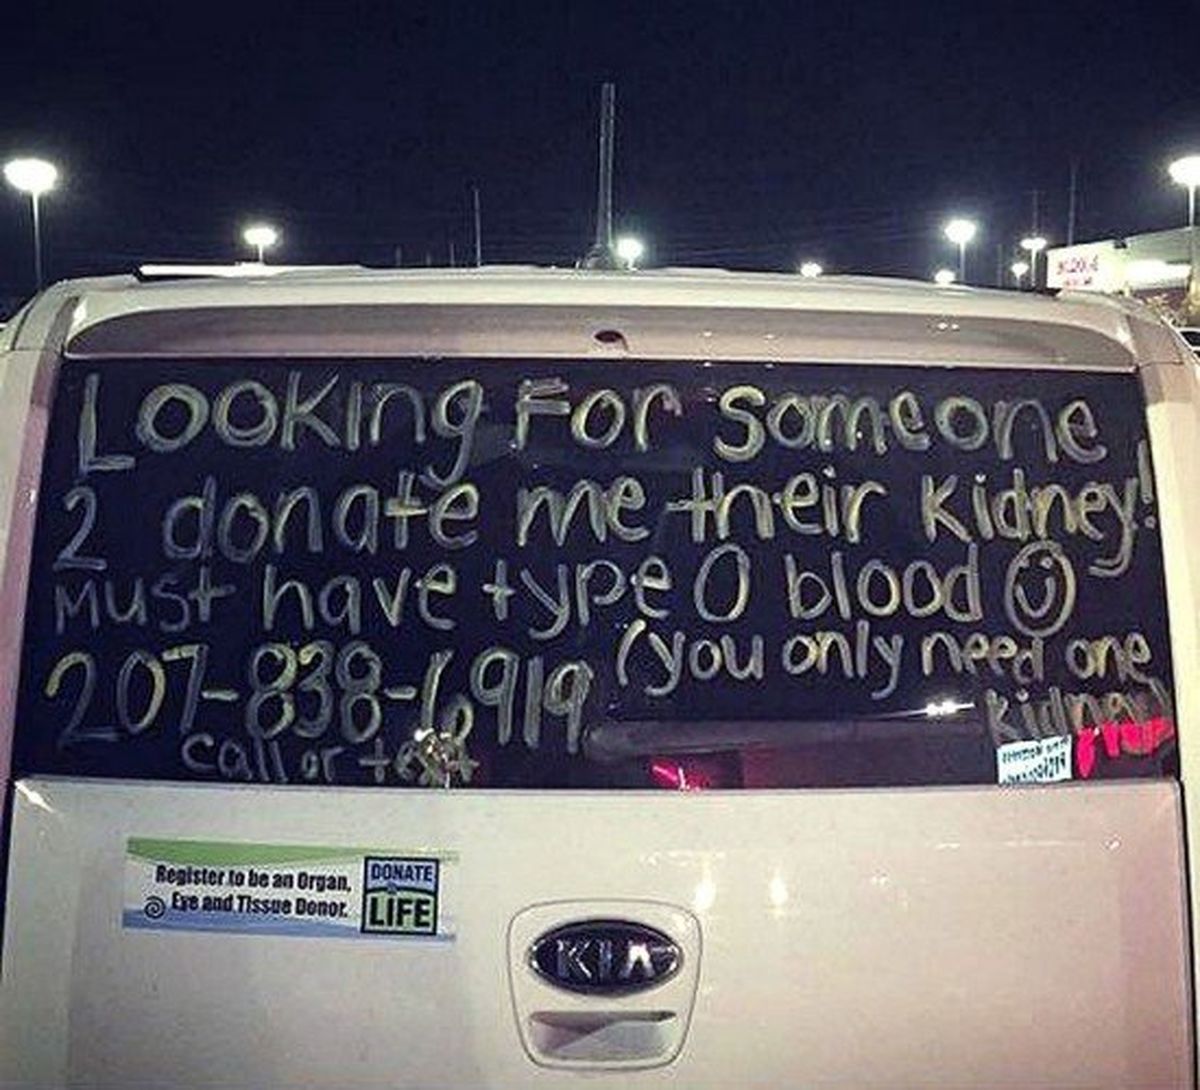 Looking For Someone
2 donate me their kidney!
Must have type O blood
207-838-6919
(you only need one
kidney
call or text
Register to be an Organ,
Eye and Tissue Donor.
DONATE
LIFE
KIA